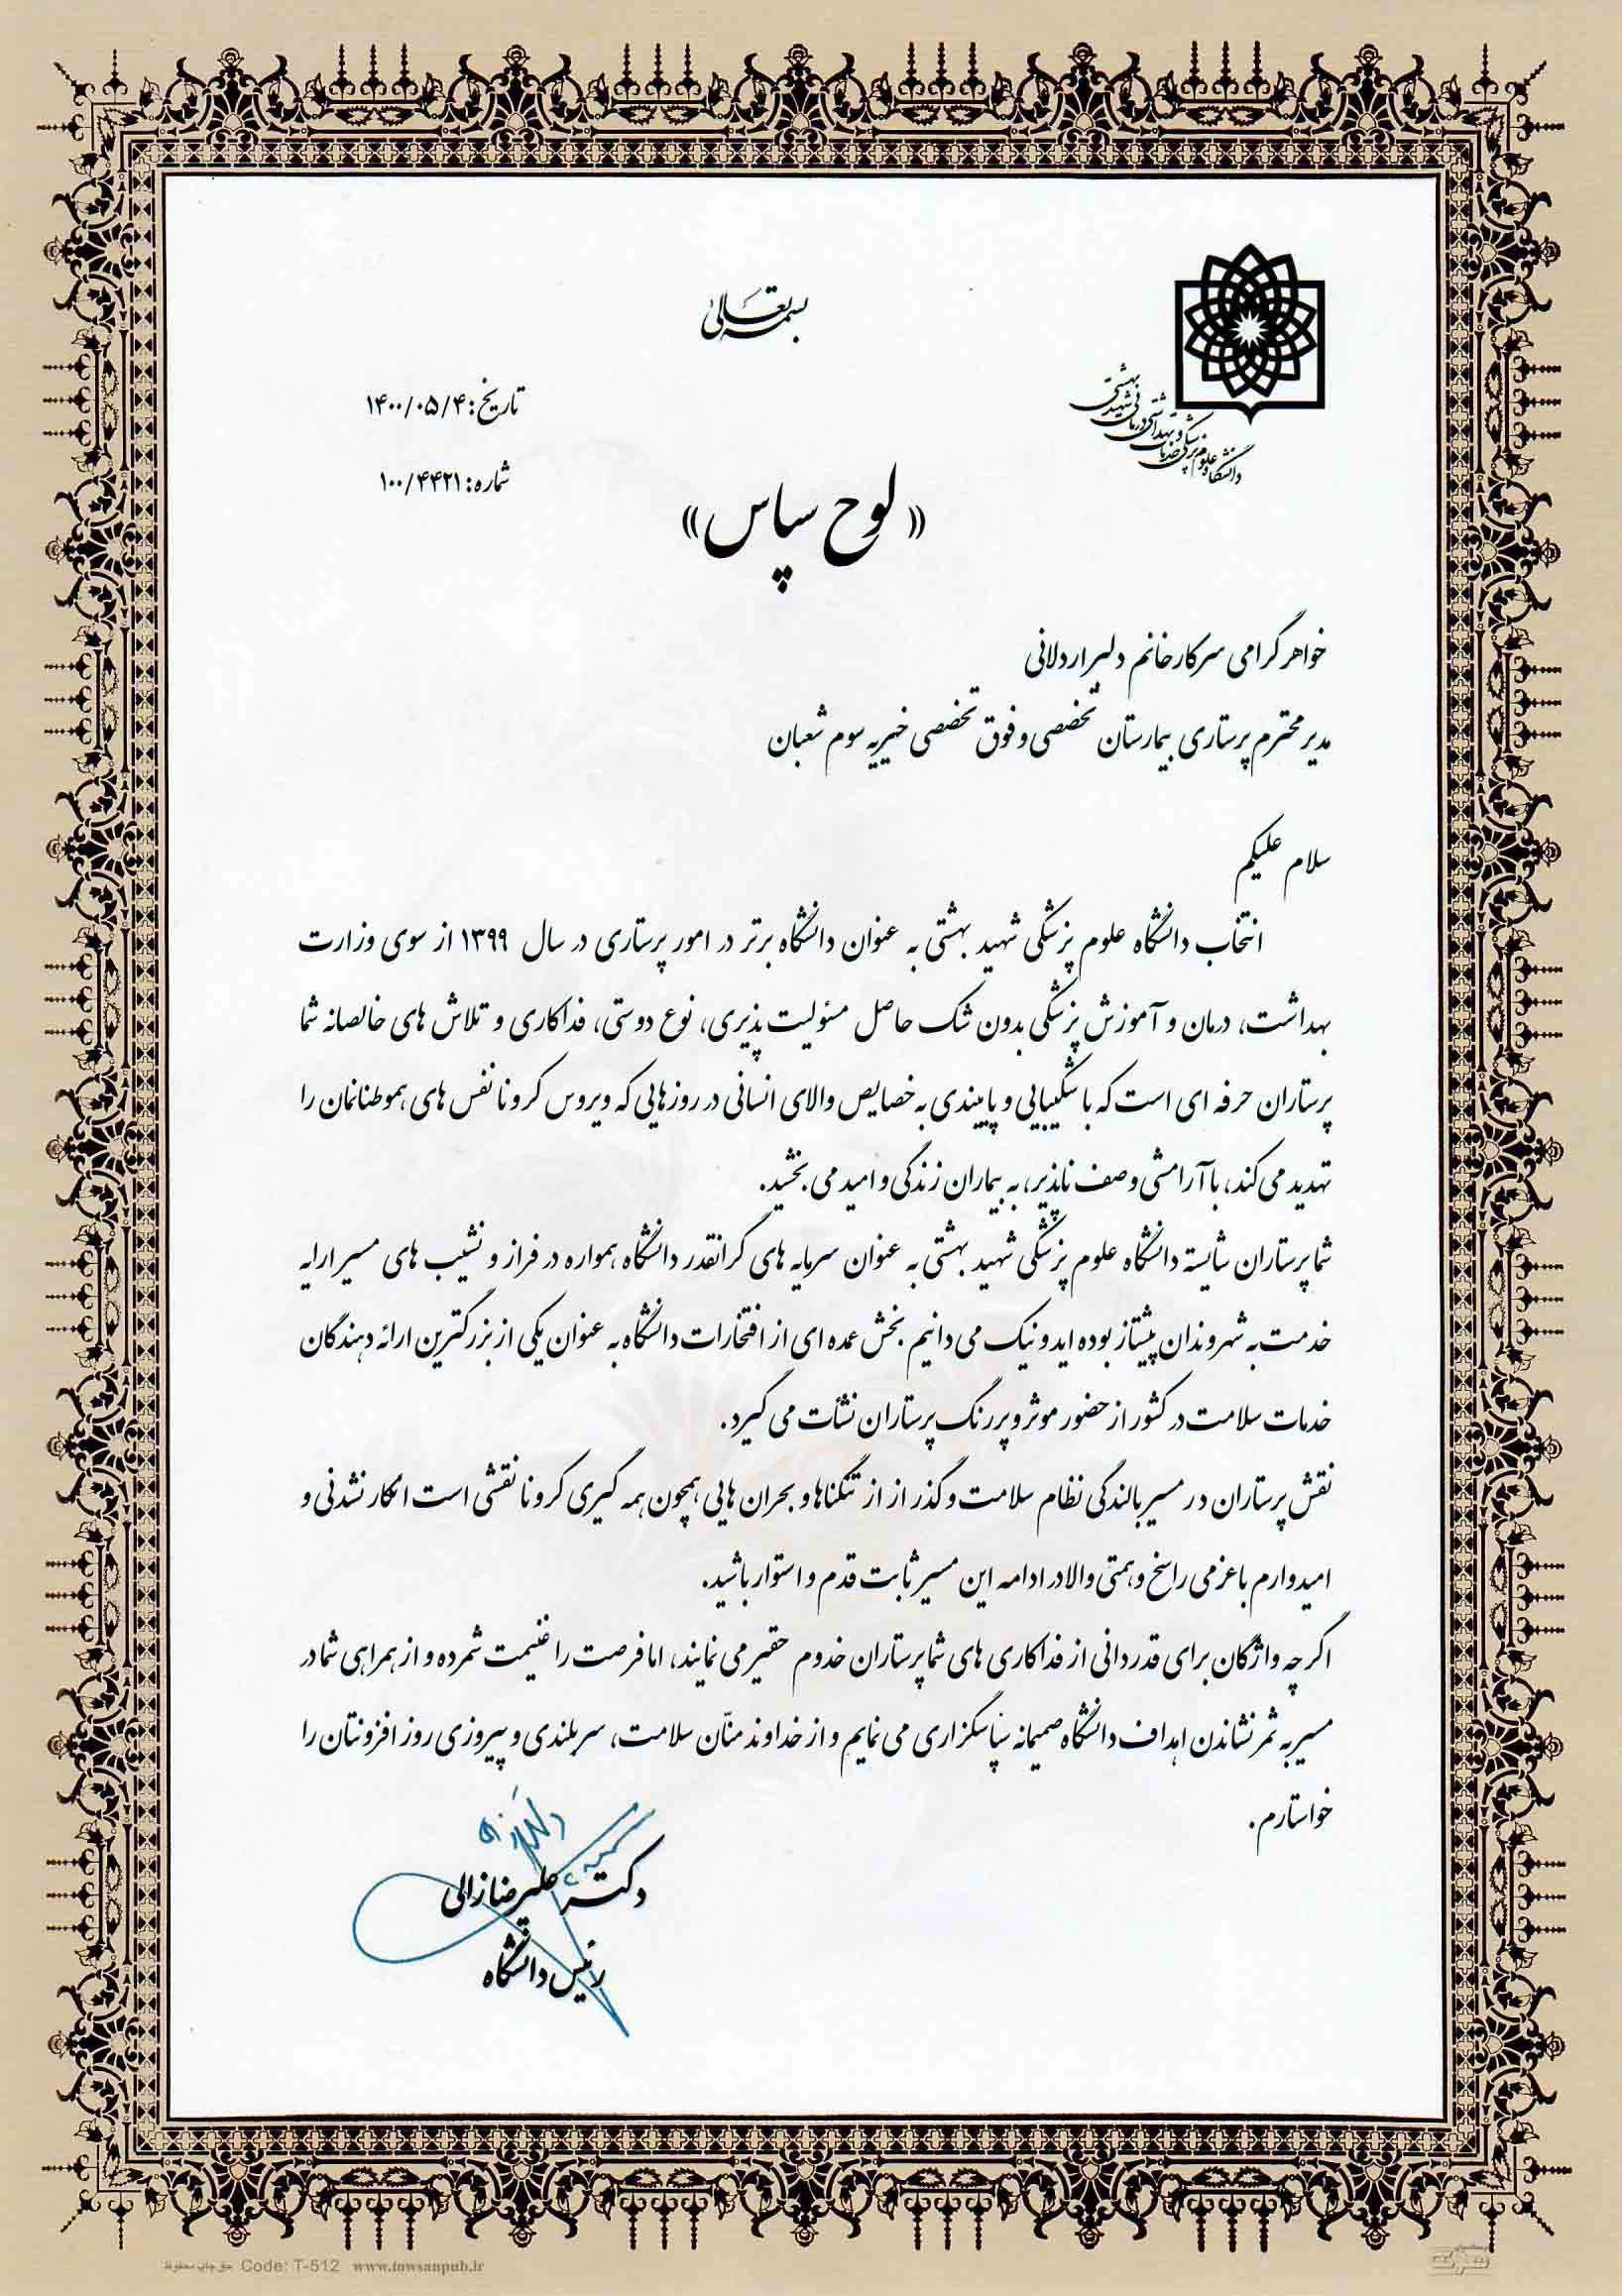 بسمه تعالی
دانشگاه علوم پزشکی و خدمات بهداشتی درمانی شهید بهشتی
تاریخ: ۱۴۰۰/۰۵/۴
شماره: ۱۰۰/۴۴۲۱
« لوح سپاس »
خواهر گرامی سرکار خانم دلبر اردلانی
مدیر محترم پرستاری بیمارستان تخصصی و فوق تخصصی خیریه سوم شعبان
سلام علیکم
انتخاب دانشگاه علوم پزشکی شهید بهشتی به عنوان دانشگاه برتر در امور پرستاری در سال ۱۳۹۹ از سوی وزارت
بهداشت، درمان و آموزش پزشکی بدون شک حاصل مسئولیت پذیری، نوع دوستی، فداکاری و تلاش های خالصانه شما
پرستاران حرفه ای است که با شکیبایی و پایبندی به خصایص والای انسانی در روزهایی که ویروس کرونا نفس های هموطنانمان را
تهدید می کند، با آرامشی وصف ناپذیر، به بیماران زندگی و امید می بخشید.
شما پرستاران شایسته دانشگاه علوم پزشکی شهید بهشتی به عنوان سرمایه های گرانقدر دانشگاه همواره در فراز و نشیب های مسیر ارایه
خدمت به شهروندان پیشتاز بوده اید و نیک می دانیم بخش عمده ای از افتخارات دانشگاه به عنوان یکی از بزرگترین ارائه دهندگان
خدمات سلامت در کشور از حضور موثر و پررنگ پرستاران نشات می گیرد.
نقش پرستاران در مسیر بالندگی نظام سلامت و گذر از از تنگناها و بحران هایی همچون همه گیری کرونا نقشی است انکار نشدنی و
امیدوارم با عزمی راسخ و همتی والا در ادامه این مسیر ثابت قدم و استوار باشید.
اگر چه واژگان برای قدردانی از فداکاری های شما پرستاران خدوم حقیر می نمایند، اما فرصت را غنیمت شمرده و از همراهی شما در
مسیر به ثمر نشاندن اهداف دانشگاه صمیمانه سپاسگزاری می نمایم و از خداوند منّان سلامت، سربلندی و پیروزی روز افزونتان را
خواستارم.
دکتر علیرضا زالی
رئیس دانشگاه
حق چاپ محفوظ Code: T-512 www.towsanpub.ir